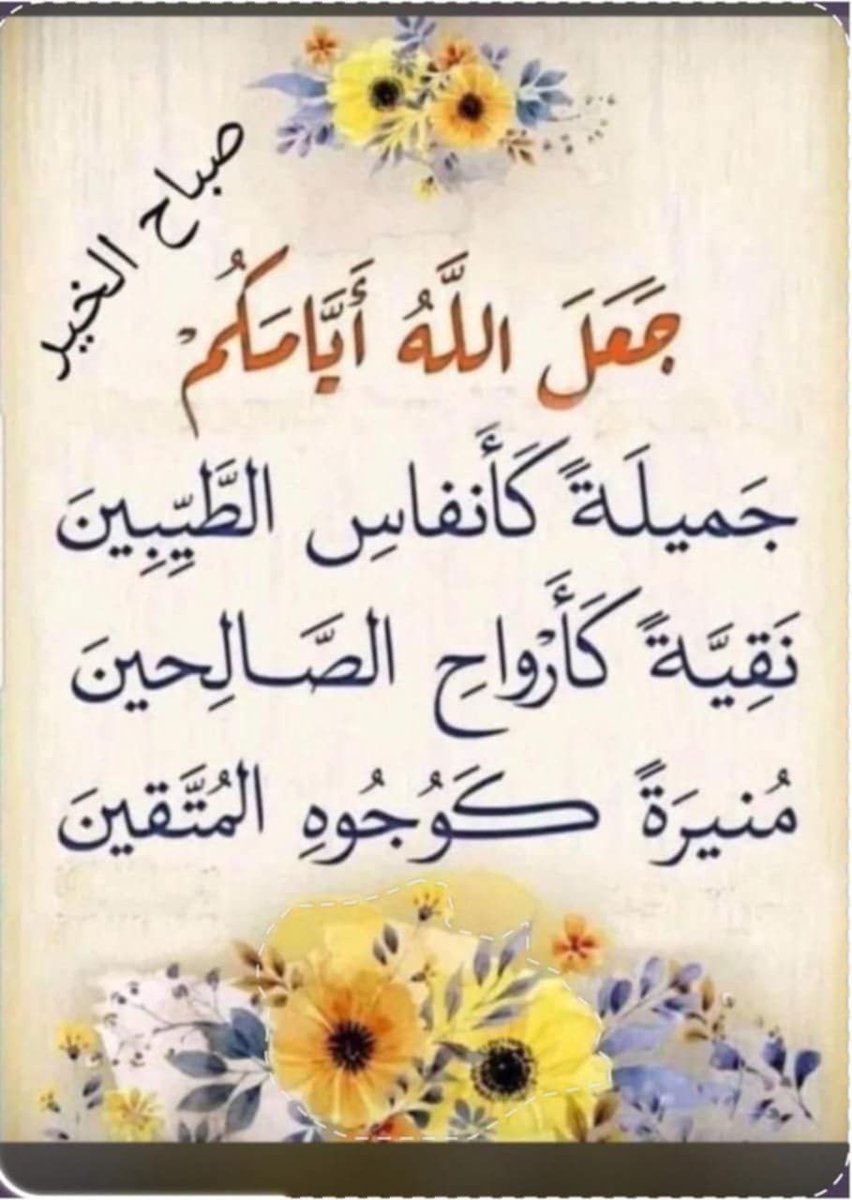 صباح الخير
جَعَلَ اللَّهُ أَيَّامَكُمْ
جَميلَةً كَأَنفاسِ الطَّيِّبِينَ
نَقِيَّةً كَأَرْواحِ الصَّالِحينَ
مُنيرَةً كَوُجُوهِ المُتَّقينَ